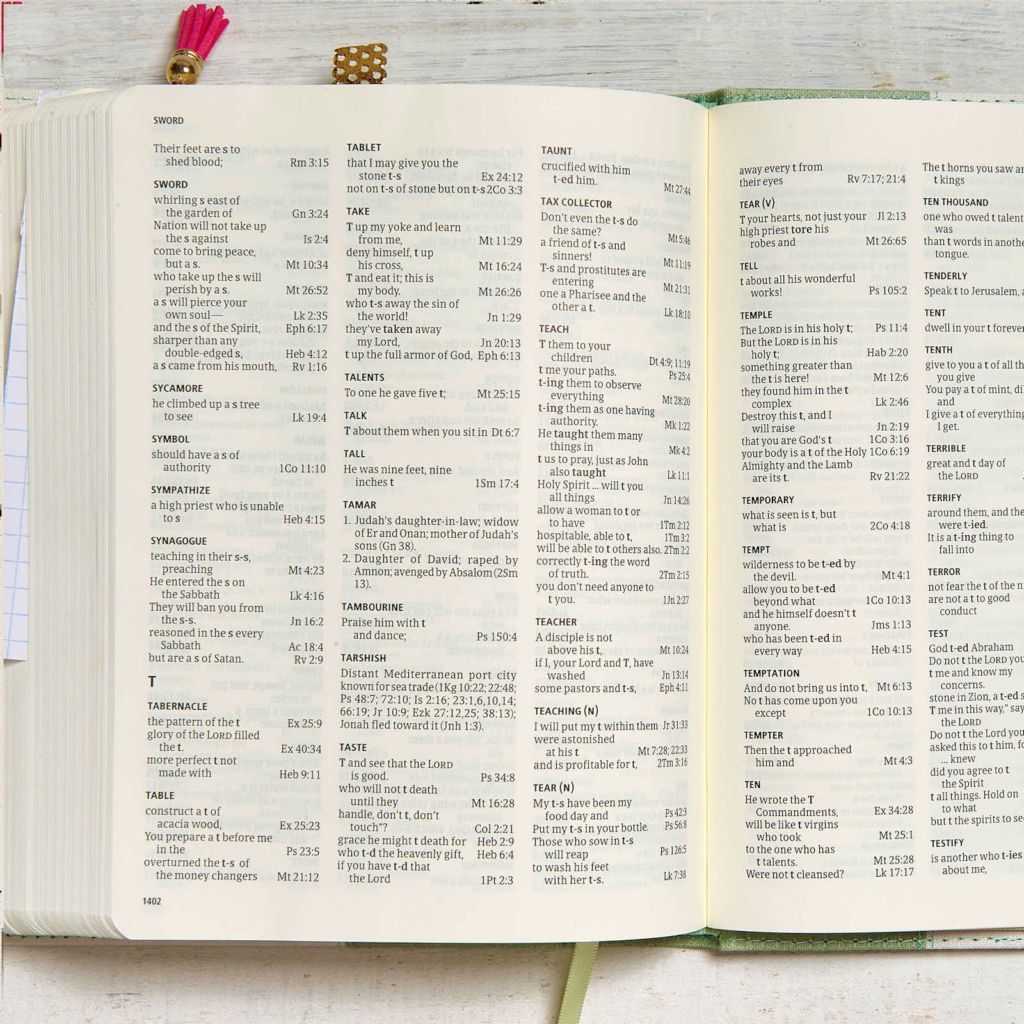 SWORD
Their feet are s to
shed blood; Rm 3:15
SWORD
whirling s east of
the garden of Gn 3:24
Nation will not take up
the s against Is 2:4
come to bring peace,
but a s. Mt 10:34
who take up the s will
perish by a s. Mt 26:52
a s will pierce your
own soul— Lk 2:35
and the s of the Spirit, Eph 6:17
sharper than any
double-edged s, Heb 4:12
a s came from his mouth, Rv 1:16
SYCAMORE
he climbed up a s tree
to see Lk 19:4
SYMBOL
should have a s of
authority 1Co 11:10
SYMPATHIZE
a high priest who is unable
to s Heb 4:15
SYNAGOGUE
teaching in their s-s,
preaching Mt 4:23
He entered the s on
the Sabbath Lk 4:16
They will ban you from
the s-s. Jn 16:2
reasoned in the s every
Sabbath Ac 18:4
but are a s of Satan. Rv 2:9
T
TABERNACLE
the pattern of the t Ex 25:9
glory of the LORD filled
the t. Ex 40:34
more perfect t not
made with Heb 9:11
TABLE
construct a t of
acacia wood, Ex 25:23
You prepare a t before me
in the Ps 23:5
overturned the t-s of
the money changers Mt 21:12
1402
TABLET
that I may give you the
stone t-s Ex 24:12
not on t-s of stone but on t-s 2Co 3:3
TAKE
T up my yoke and learn
from me, Mt 11:29
deny himself, t up
his cross, Mt 16:24
T and eat it; this is
my body. Mt 26:26
who t-s away the sin of
the world! Jn 1:29
they've taken away
my Lord, Jn 20:13
t up the full armor of God, Eph 6:13
TALENTS
To one he gave five t; Mt 25:15
TALK
T about them when you sit in Dt 6:7
TALL
He was nine feet, nine
inches t 1Sm 17:4
TAMAR
1. Judah's daughter-in-law; widow
of Er and Onan; mother of Judah's
sons (Gn 38).
2. Daughter of David; raped by
Amnon; avenged by Absalom (2Sm
13).
TAMBOURINE
Praise him with t
and dance; Ps 150:4
TARSHISH
Distant Mediterranean port city
known for sea trade (1Kg 10:22; 22:48;
Ps 48:7; 72:10; Is 2:16; 23:1,6,10,14;
66:19; Jr 10:9; Ezk 27:12,25; 38:13);
Jonah fled toward it (Jnh 1:3).
TASTE
T and see that the LORD
is good. Ps 34:8
who will not t death
until they Mt 16:28
handle, don't t, don't
touch"? Col 2:21
grace he might t death for Heb 2:9
who t-d the heavenly gift, Heb 6:4
if you have t-d that
the Lord 1Pt 2:3
TAUNT
crucified with him
t-ed him. Mt 27:44
TAX COLLECTOR
Don't even the t-s do
the same? Mt 5:46
a friend of t-s and
sinners! Mt 11:19
T-s and prostitutes are
entering Mt 21:31
one a Pharisee and the
other a t. Lk 18:10
TEACH
T them to your
children Dt 4:9; 11:19
t me your paths. Ps 25:4
t-ing them to observe
everything Mt 28:20
t-ing them as one having
authority. Mk 1:22
He taught them many
things in Mk 4:2
t us to pray, just as John
also taught Lk 11:1
Holy Spirit ... will t you
all things Jn 14:26
allow a woman to t or
to have 1Tm 2:12
hospitable, able to t, 1Tm 3:2
will be able to t others also. 2Tm 2:2
correctly t-ing the word
of truth. 2Tm 2:15
you don't need anyone to
t you. 1Jn 2:27
TEACHER
A disciple is not
above his t, Mt 10:24
if I, your Lord and T, have
washed Jn 13:14
some pastors and t-s, Eph 4:11
TEACHING (N)
I will put my t within them Jr 31:33
were astonished
at his t Mt 7:28; 22:33
and is profitable for t, 2Tm 3:16
TEAR (N)
My t-s have been my
food day and Ps 42:3
Put my t-s in your bottle. Ps 56:8
Those who sow in t-s
will reap Ps 126:5
to wash his feet
with her t-s. Lk 7:38
away every t from
their eyes Rv 7:17; 21:4
TEAR (V)
T your hearts, not just your Jl 2:13
high priest tore his
robes and Mt 26:65
TELL
t about all his wonderful
works! Ps 105:2
TEMPLE
The LORD is in his holy t; Ps 11:4
But the LORD is in his
holy t; Hab 2:20
something greater than
the t is here! Mt 12:6
they found him in the t
complex Lk 2:46
Destroy this t, and I
will raise Jn 2:19
that you are God's t 1Co 3:16
your body is a t of the Holy 1Co 6:19
Almighty and the Lamb
are its t. Rv 21:22
TEMPORARY
what is seen is t, but
what is 2Co 4:18
TEMPT
wilderness to be t-ed by
the devil. Mt 4:1
allow you to be t-ed
beyond what 1Co 10:13
and he himself doesn't t
anyone. Jms 1:13
who has been t-ed in
every way Heb 4:15
TEMPTATION
And do not bring us into t, Mt 6:13
No t has come upon you
except 1Co 10:13
TEMPTER
Then the t approached
him and Mt 4:3
TEN
He wrote the T
Commandments, Ex 34:28
will be like t virgins
who took Mt 25:1
to the one who has
t talents. Mt 25:28
Were not t cleansed? Lk 17:17
The t horns you saw
t kings
TEN THOUSAND
one who owed t talent
was
than t words in anothe
tongue.
TENDERLY
Speak t to Jerusalem,
TENT
dwell in your t forever
TENTH
give to you a t of all th
you give
You pay a t of mint, di
and
I give a t of everything
I get.
TERRIBLE
great and t day of
the LORD
TERRIFY
around them, and the
were t-ied.
It is a t-ing thing to
fall into
TERROR
not fear the t of the n
are not a t to good
conduct
TEST
God t-ed Abraham
Do not t the LORD yo
t me and know my
concerns.
stone in Zion, a t-ed s
T me in this way," say
the LORD
Do not t the Lord you
asked this to t him, fo
... knew
did you agree to t
the Spirit
t all things. Hold on
to what
but t the spirits to se
TESTIFY
is another who t-ies
about me,